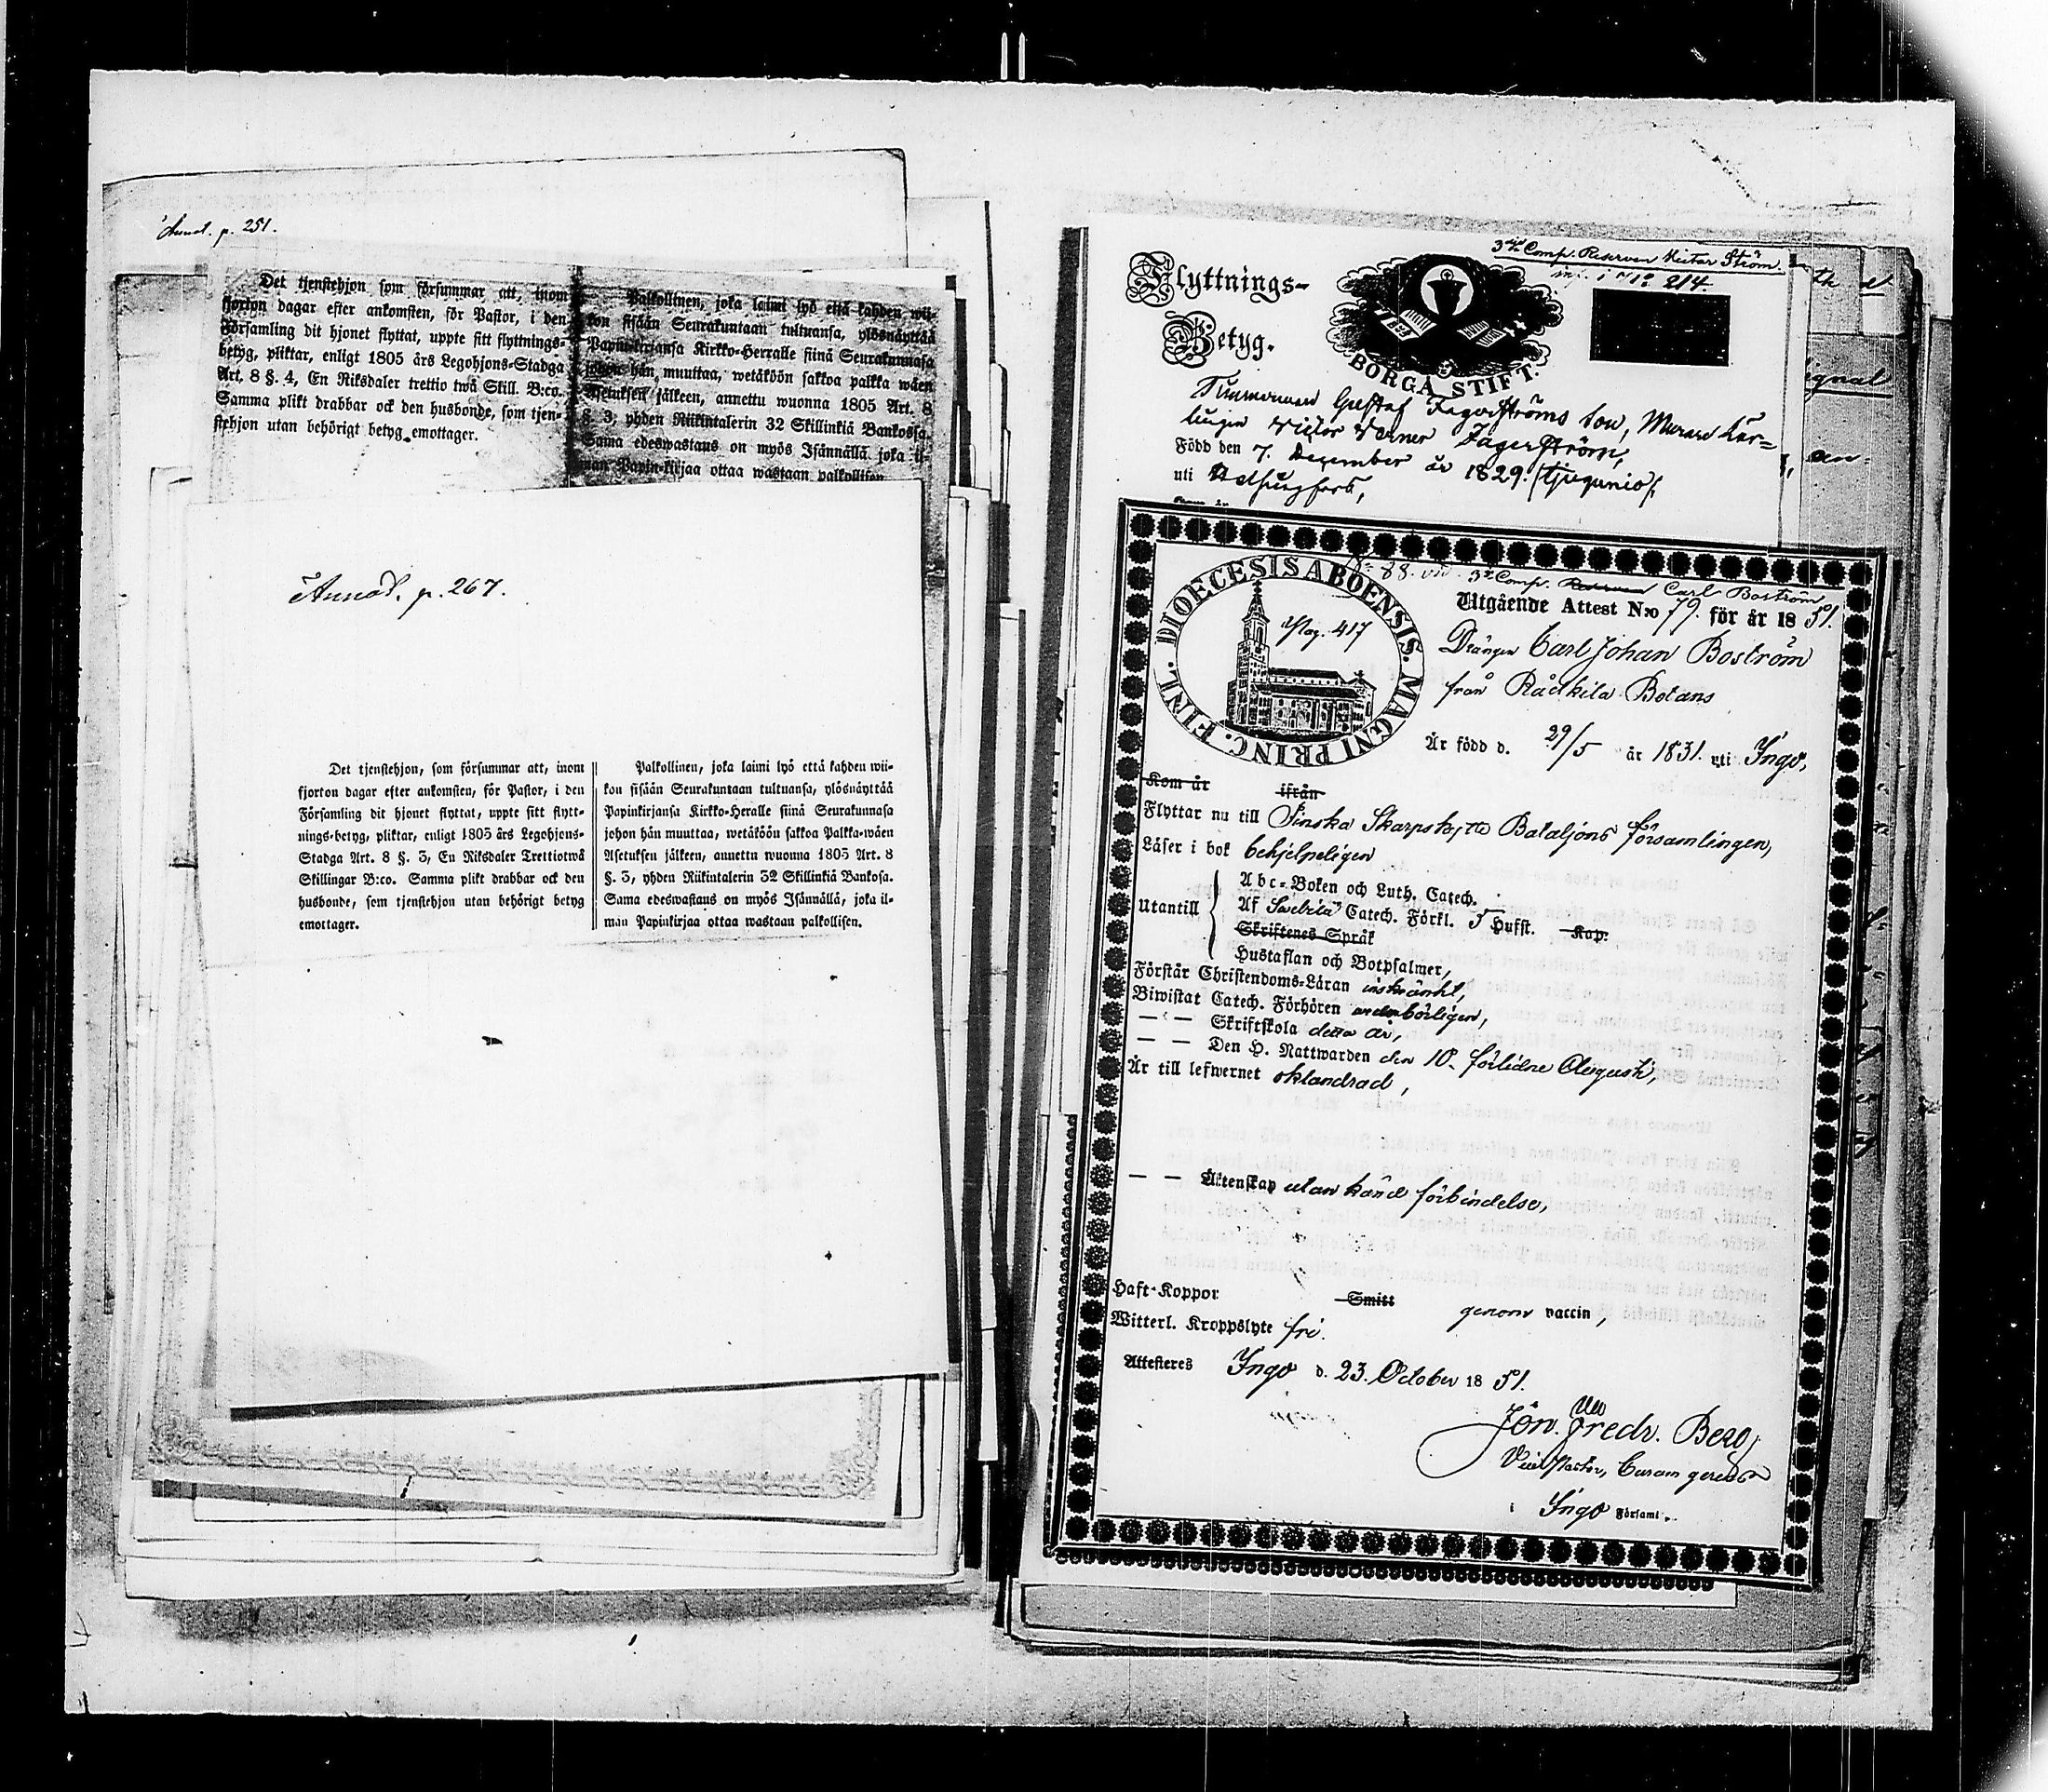 Annot. p. 251.
Det tjenstehjon som försummar att, inom
fjorton dagar efter ankomsten, för Pastor, i den
Församling dit hjonet flyttat, uppte sitt flyttnings-
betyg, pliktar, enligt 1805 års Legohjons-Stadga
Art. 8 §. 4, En Riksdaler trettio twå Skill. B:co.
Samma plikt drabbar ock den husbonde, som tjen-
stehjon utan behörigt betyg emottager.
Palkollinen, joka laimi lyö että kahden wii-
kon sisään Seurakuntaan tultuansa, ylösnäyttää
Papinkirjansa Kirkko-Herralle siinä Seurakunnasa
johon hän muuttaa, wetäköön sakkoa palkka wäen
Asetuksen jälkeen, annettu wuonna 1805 Art. 8
§. 3, yhden Riikintalerin 32 Skillinkiä Bankossa.
Sama edeswastaus on myös Isännällä, joka il-
man Papin-kirjaa ottaa wastaan palkollisen.
Annot. p. 267.
Det tjenstehjon, som försummar att, inom
fjorton dagar efter ankomsten, för Pastor, i den
Församling dit hjonet flyttat, uppte sitt flytt-
nings-betyg, pliktar, enligt 1805 års Legohjons-
Stadga Art. 8 §. 3, En Riksdaler Trettiotwå
Skillingar B:co. Samma plikt drabbar ock den
husbonde, som tjenstehjon utan behörigt betyg
emottager.
Palkollinen, joka laimi lyö että kahden wii-
kon sisään Seurakuntaan tultuansa, ylösnäyttää
Papinkirjansa Kirkko-Heralle siinä Seurakunnasa
johon hän muuttaa, wetäköön sakkoa Palkka-wäen
Asetuksen jälkeen, annettu wuonna 1805 Art. 8
§. 3, yhden Riikintalerin 32 Skillinkiä Bankosa.
Sama edeswastaus on myös Isännällä, joka il-
man Papinkirjaa ottaa wastaan palkollisen.
3die Comp. Reserven Victor Ström.
214.
Flyttnings-
Betyg.
BORGÅ STIFT.
Timmerman Gustaf Fagerströms son, Murare Lär-
lingen Victor Verner Fagerström,
Född den 7. December år 1829. /tjugunio/,
uti Helsingfors,
88. 3e Comp. Reserven Carl Boström
DIOECESIS ABOENSIS. MAGNI PRINC. FINL.
pag. 417
Utgående Attest N:o 79. för år 1851.
Drängen Carl Johan Boström
från Rådkila Botans
Är född d. 29/5 år 1831. uti Ingo,
Kom år ifrån
Flyttar nu till Finska Skarpskytte Bataljons församlingen,
Läser i bok behjelpeligen
Utantill
Abc-Boken och Luth. Catech.
Af Svebilii Catech. Förkl. 5 Hufst. Kap.
Skriftenes Språk
Hustaflan och Botpsalmer,
Förstår Christendoms-Läran inskränkt,
Biwistat Catech. Förhören
— „ — Skriftskola detta år,
— — Den H. Nattwarden den 10. förlidne Augusti,
Är till lefwernet oklandrad,
— — Äktenskap utan känd förbindelse,
Haft-Koppor Smitt genom vaccin,
Witterl. Kroppslyte fri.
Attesteres Ingo d. 23. October 1851.
Jön. Fredr. Berg
Vice Pastor, Curam gerens
i Ingo Församl.